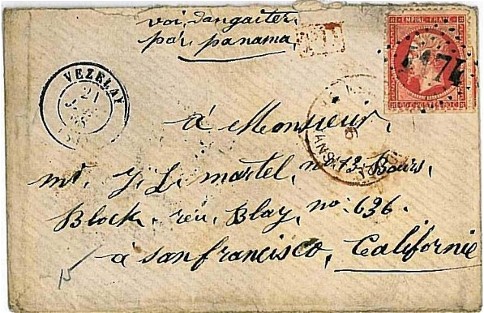 voi, dangaiter
par panama
VEZELAY
21
EMPIRE FRANC
4174
à Monsieur,
mr. J. L. martel, no 13. Bours,
Block. reu Blay, no: 636.
a san francisco, Californie